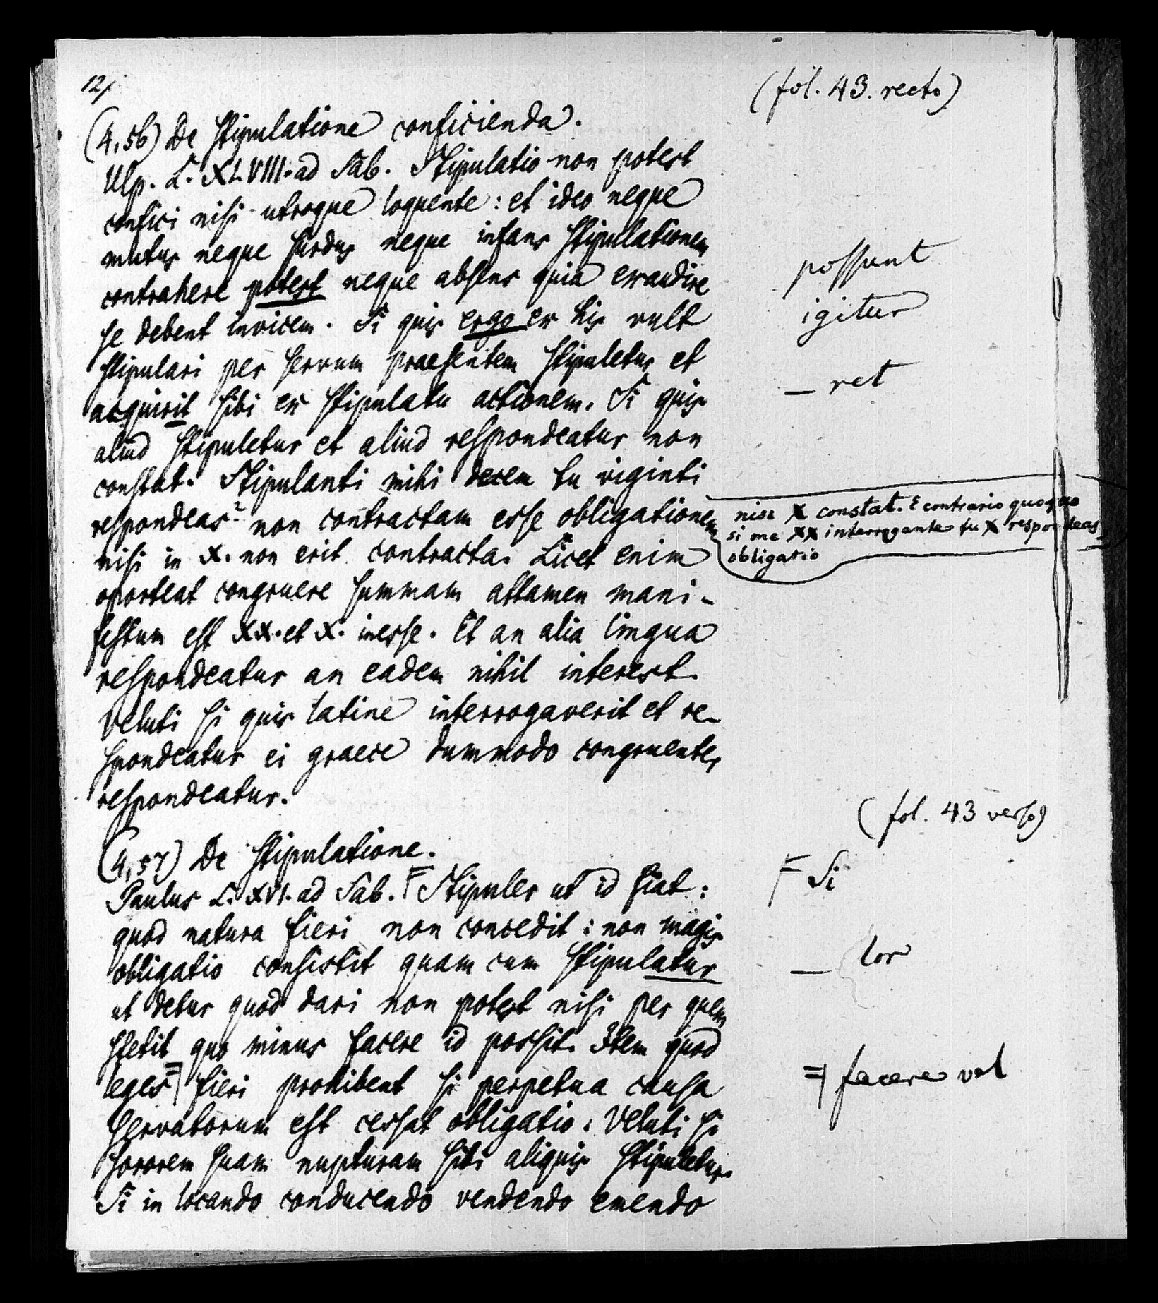 12/.
(fol. 43. recto)
(4,56) De Stipulatione conficienda.
Ulp. L. XLVIII. ad Sab. Stipulatio non potest
confici nisi utroque loquente: et ideo neque
mutus neque surdus neque infans stipulationem
contrahere potest neque absens quia exaudire
possunt
se debent invicem. Si quis ergo ex his vult
igitur
stipulari per servum praesentem stipuletur et
acquirit sibi ex stipulatu actionem. Si quis
— ret
aliud stipuletur et aliud respondeatur non
constat. Stipulanti mihi decem tu viginti
respondeas non contractam esse obligationem
nisi X constat. E contrario quoque
si me XX interrogante tu X respondeas
obligatio
nisi in X. non erit contracta. Licet enim
oporteat congruere summam attamen mani-
festum est XX. et X. inesse. Et an alia lingua
respondeatur an eadem nihil interest.
Veluti si quis latine interrogaverit et re-
spondeatur ei graece dummodo congruenter
respondeatur.
(fol. 43 verso)
(4,57) De Stipulatione.
Paulus L. XVI. ad Sab. Stipuler ut id fiat:
Si
quod natura fieri non concedit: non magis
obligatio consistit quam cum stipulatur
— tor
ut detur quod dari non potest nisi per quem
stetit quo minus facere id possit. Item quod
leges fieri prohibent si perpetua causa
facere vel
servatorum est cessat obligatio: Veluti si
sororem suam nupturam sibi aliquis stipuletur.
Si in locando conducendo vendendo emendo